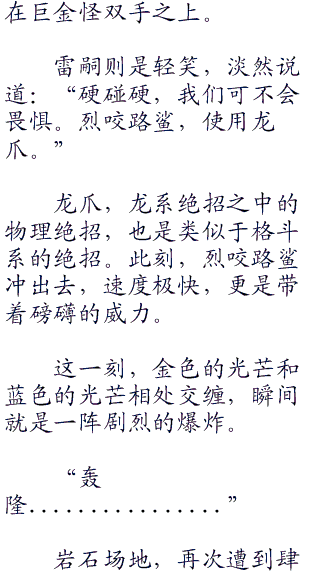 在巨金怪双手之上。
雷嗣则是轻笑，淡然说
道：“硬碰硬，我们可不会
畏惧。烈咬路鲨，使用龙
爪。”
龙爪，龙系绝招之中的
物理绝招，也是类似于格斗
系的绝招。此刻，烈咬路鲨
冲出去，速度极快，更是带
着磅礴的威力。
这一刻，金色的光芒和
蓝色的光芒相处交缠，瞬间
就是一阵剧烈的爆炸。
“轰
隆................”
岩石场地，再次遭到肆